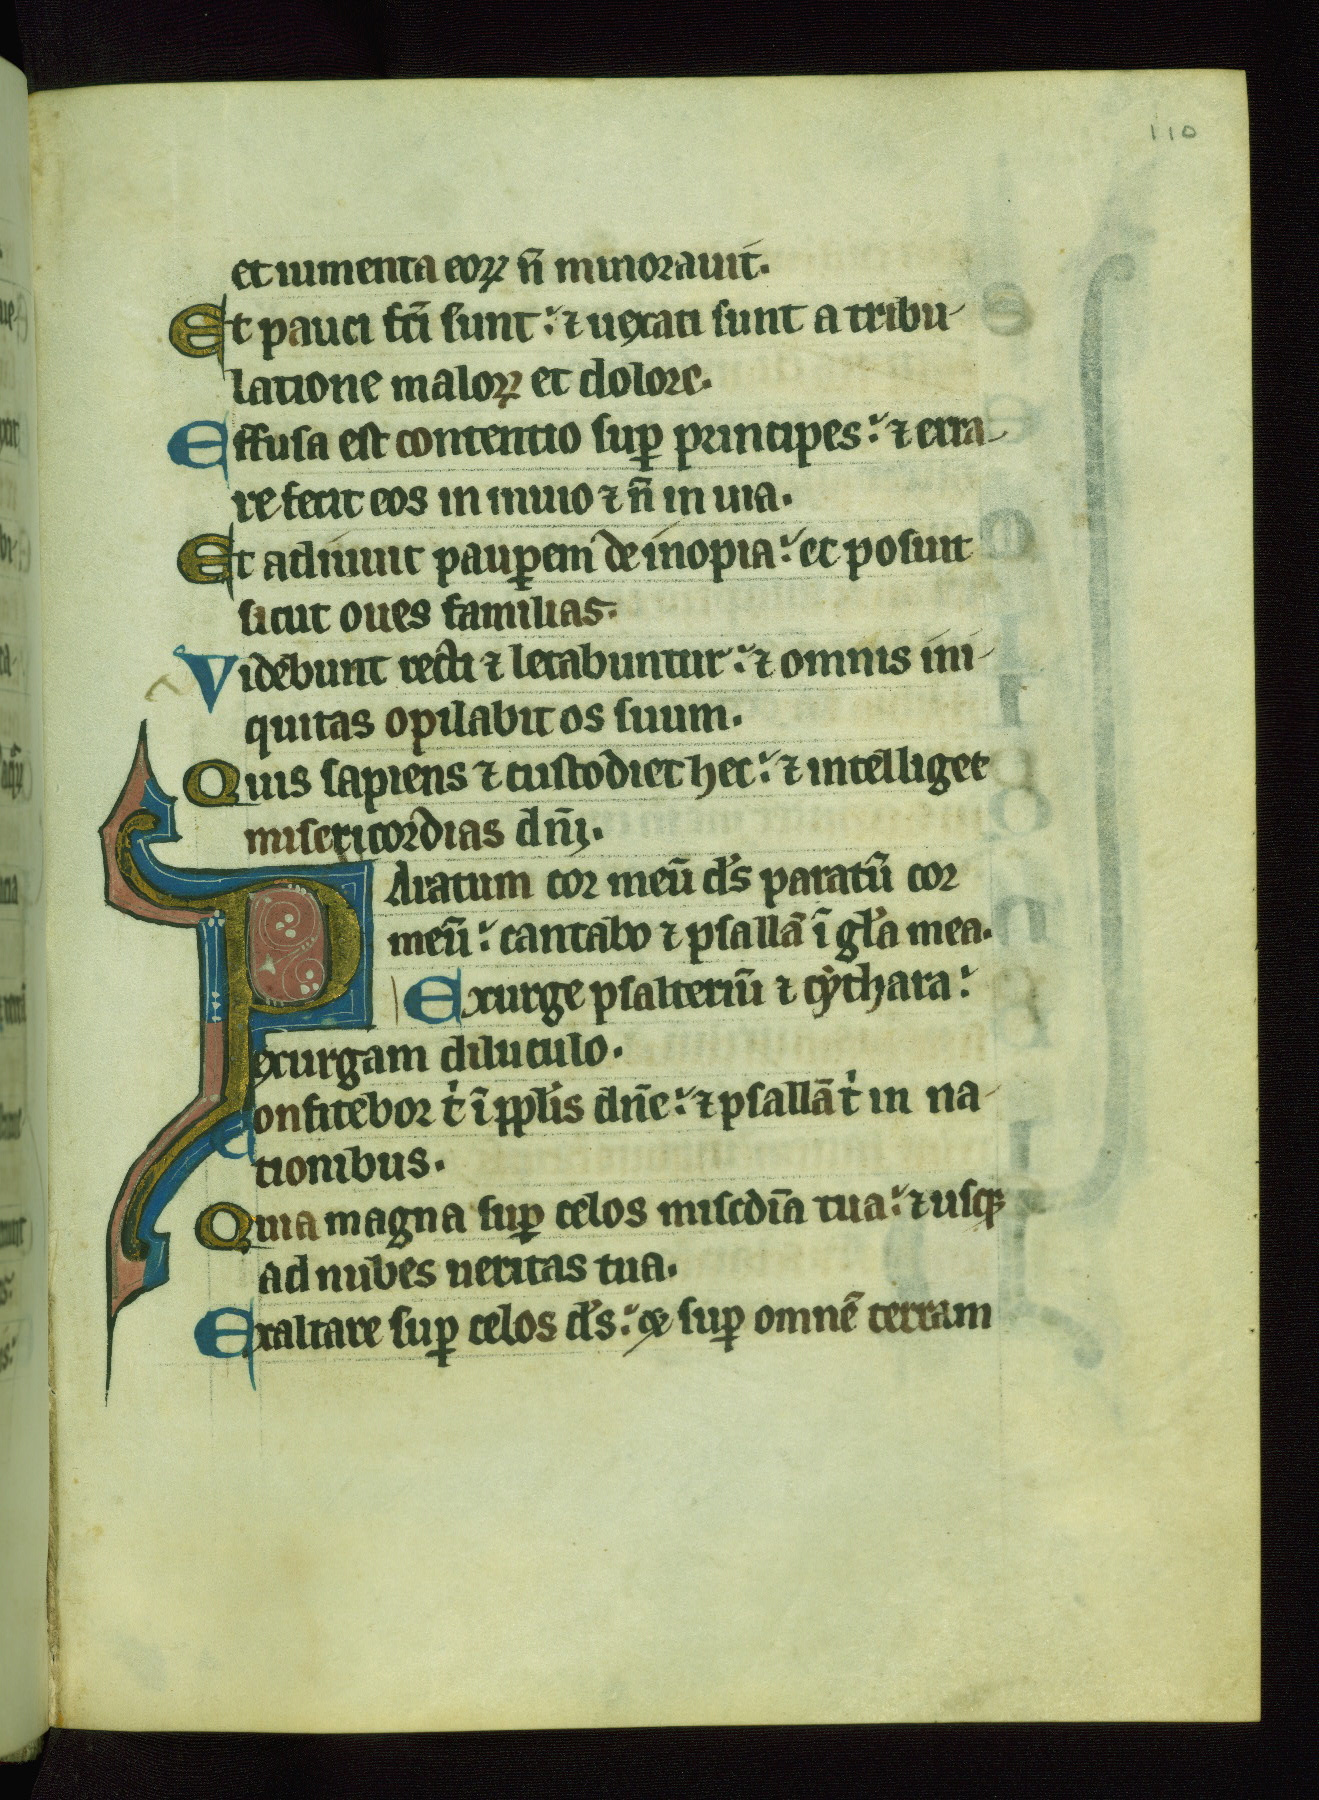 110
et iumenta eoꝝ n̄ minorauit.
Et pauci fc̄i sunt: ⁊ uexati sunt a tribu-
latione maloꝝ et dolore.
Effusa est contentio suꝑ principes: ⁊ erra-
re fecit eos in inuio ⁊ n̄ in uia.
Et adiuuit pauꝑem de inopia: et posuit
sicut oues familias.
Videbunt recti ⁊ letabuntur: ⁊ omnis ini-
quitas opilabit os suum.
Quis sapiens ⁊ custodiet hec: ⁊ intelliget
misericordias dn̄i.
Paratum cor meū ds̄ paratū cor
meū: cantabo ⁊ psallā ī gl̄a mea.
Exurge psalteriū ⁊ cythara:
exurgam diluculo.
Confitebor t̍ ī ppl̄is dn̄e: ⁊ psallā t̍ in na-
tionibus.
Quia magna suꝑ celos misc̄dia tua: ⁊ usqꝫ
ad nubes ueritas tua.
Exaltare suꝑ celos ds̄: ⁊ suꝑ omnē terram